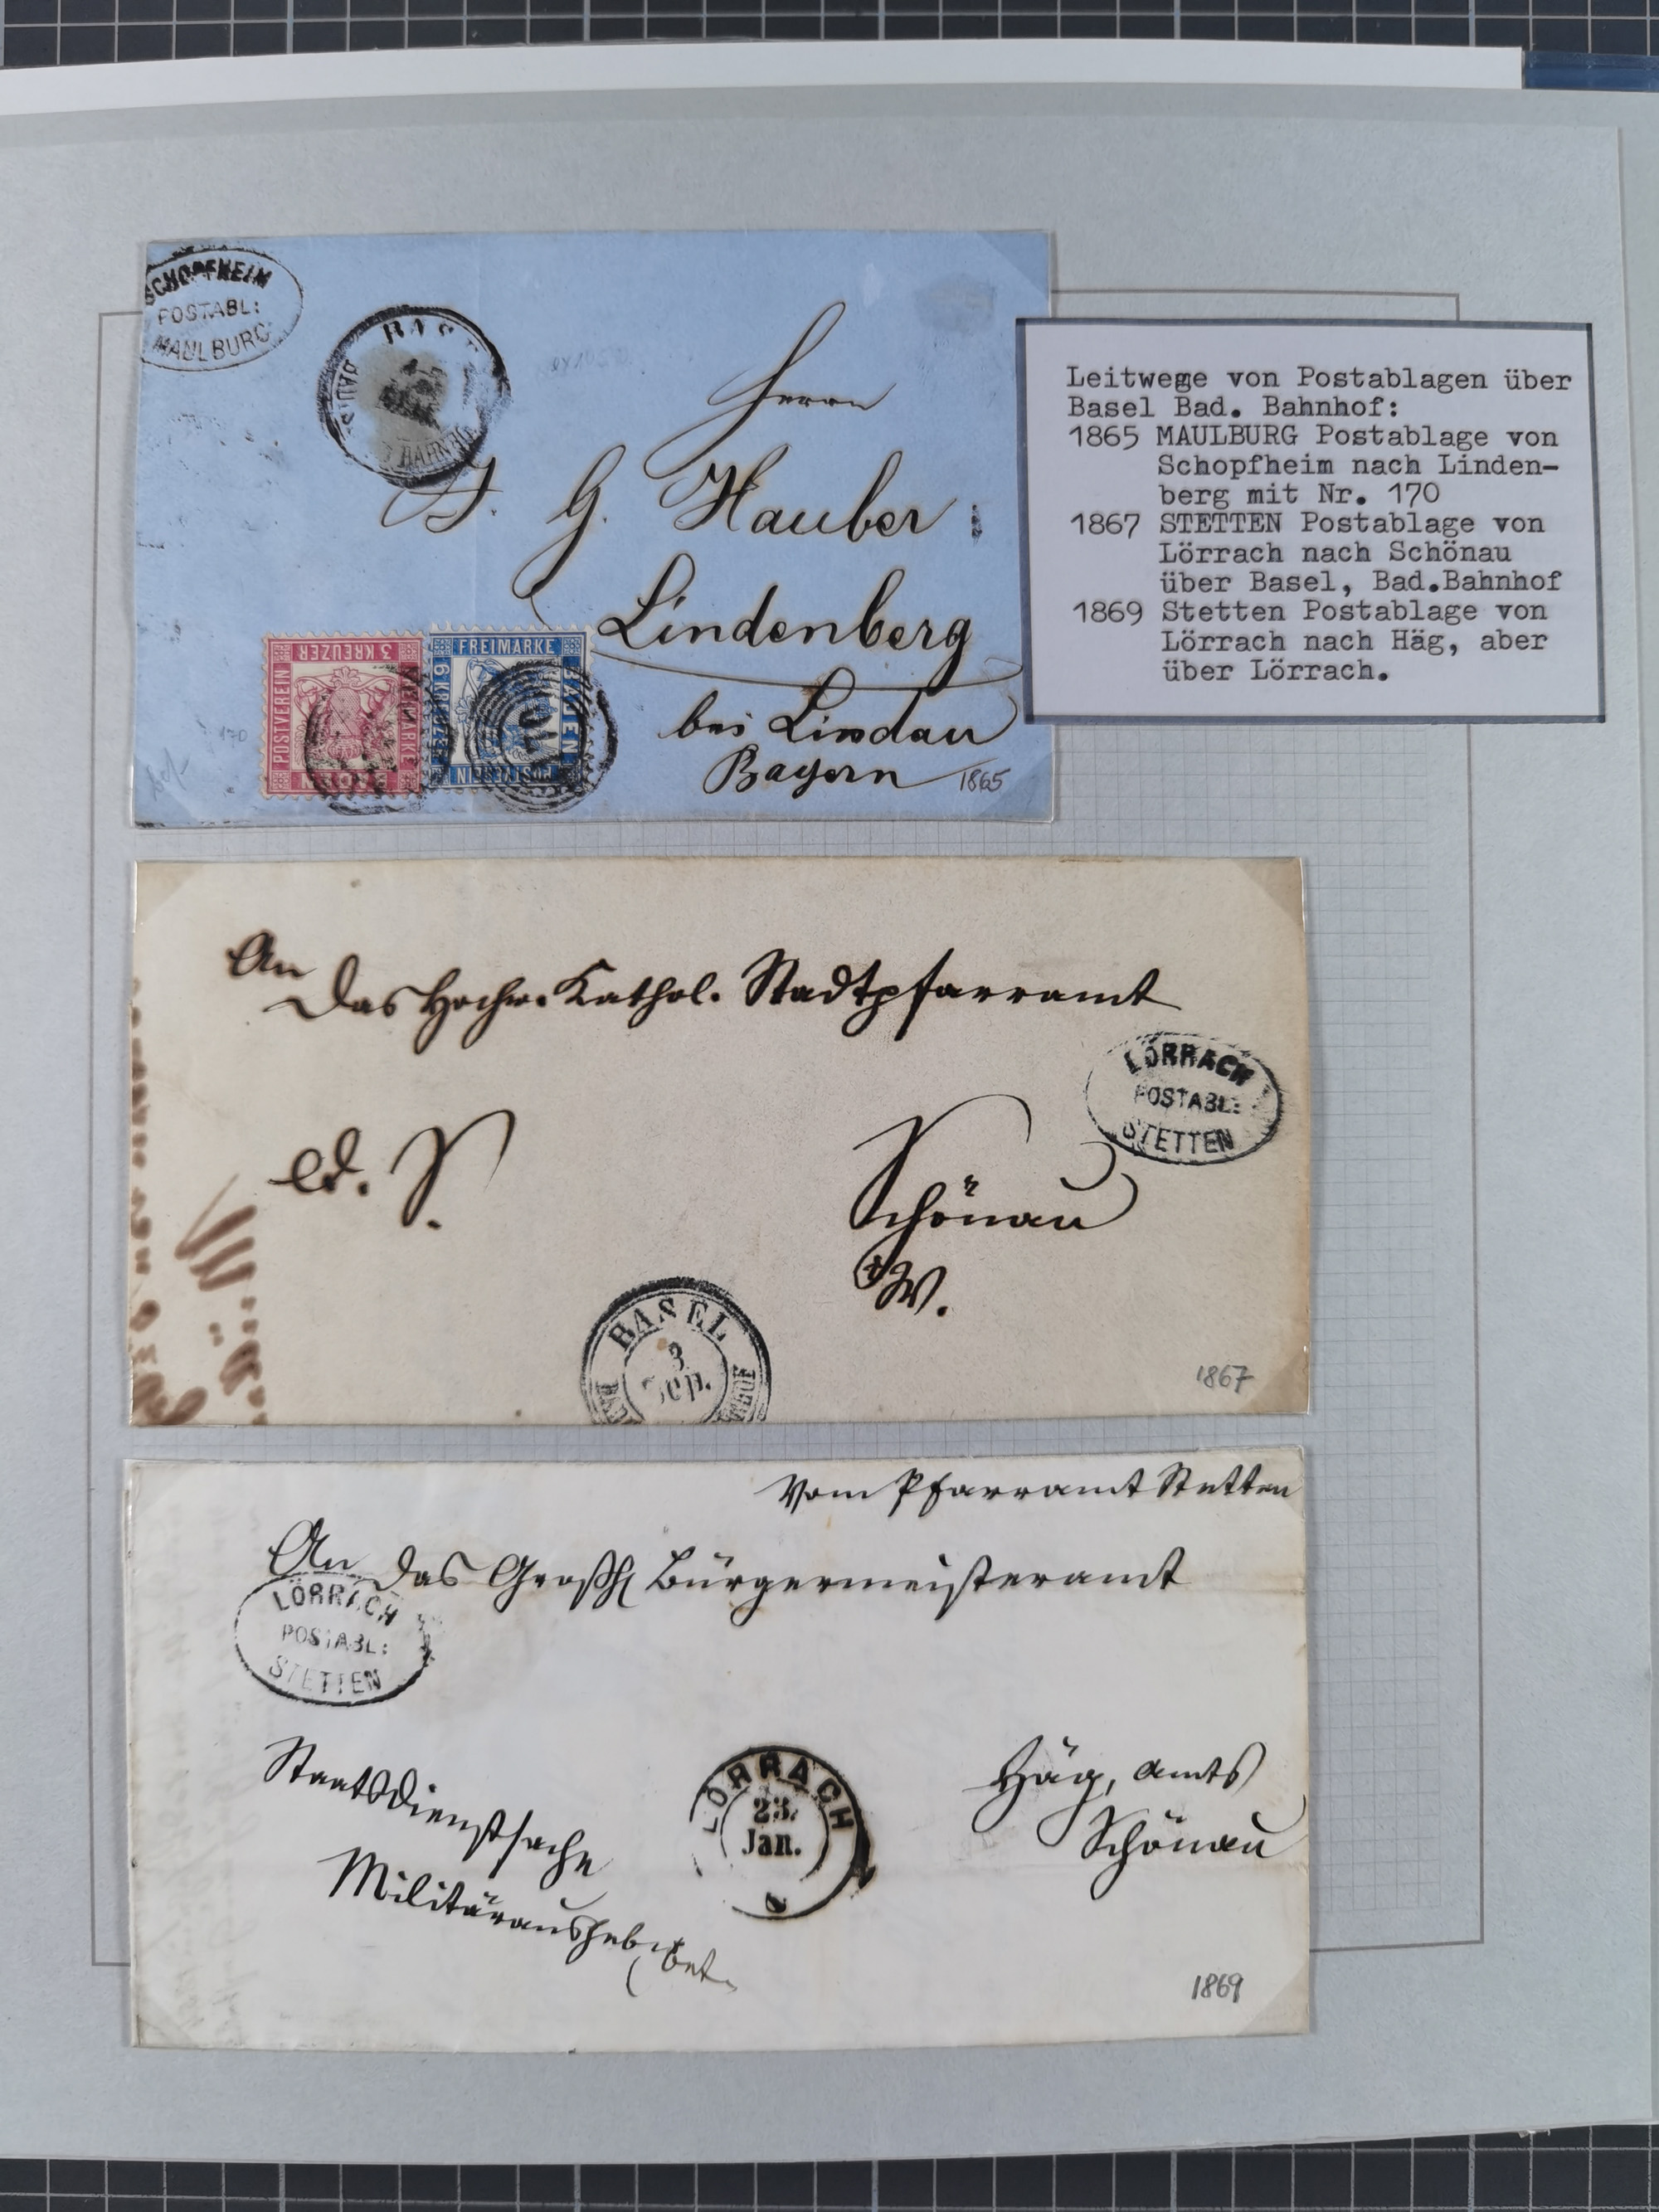 SCHOPFHEIM
POSTABL:
MAULBURG
BAHNHOF
Herrn
J. G. Hauber
Lindenberg
bei Lindau
Bayern
1865
170
3 KREUZER
POSTVEREIN
FREIMARKE
BADEN
FREIMARKE
6 KREUZER
BADEN
POSTVEREIN
Leitwege von Postablagen über
Basel Bad. Bahnhof:
1865 MAULBURG Postablage von
Schopfheim nach Linden-
berg mit Nr. 170
1867 STETTEN Postablage von
Lörrach nach Schönau
über Basel, Bad.Bahnhof
1869 Stetten Postablage von
Lörrach nach Häg, aber
über Lörrach.
An
das Hochw. Kathol. Stadtpfarramt
LÖRRACH
POSTABL:
STETTEN
Schönau
i/W.
BASEL
3
Sep.
1867
Vom Pfarramt Stetten
An das Großh Bürgermeisteramt
LÖRRACH
POSTABL:
STETTEN
Staatsdienstsache
LÖRRACH
23.
Jan.
Häg, Amts
Schönau
1869